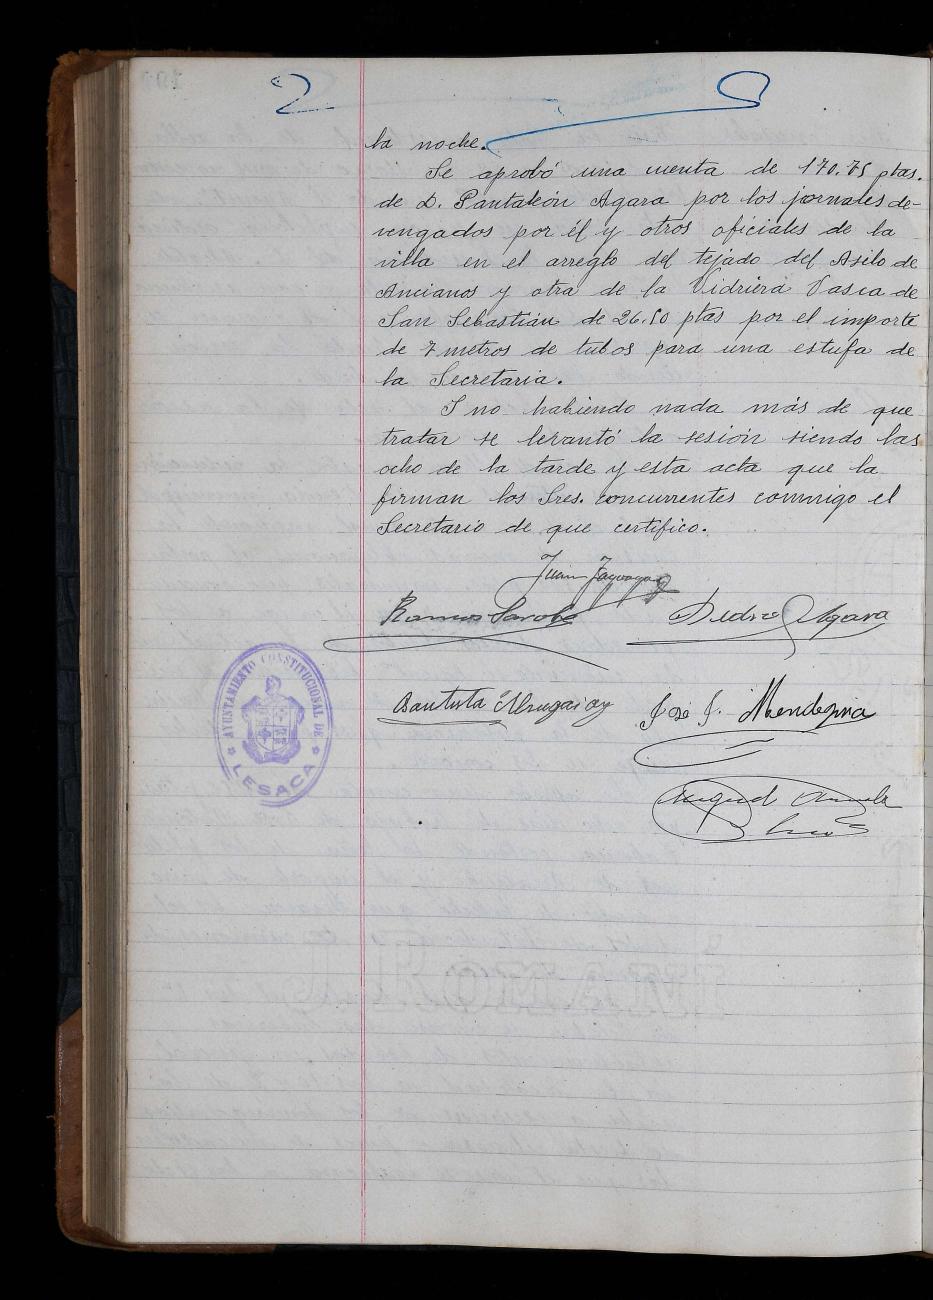 la noche.
Se aprobó una cuenta de 170.75 ptas.
de D. Pantaleón Agara por los jornales de-
vengados por él y otros oficiales de la
villa en el arreglo del tejado del Asilo de
Ancianos y otra de la Vidriera Vasca de
San Sebastián de 26.50 ptas por el importe
de 7 metros de tubos para una estufa de
la Secretaria.
Y no habiendo nada más de que
tratar se levantó la sesión siendo las
ocho de la tarde y esta acta que la
firman los Sres. concurrentes conmigo el
Secretario de que certifico.
Juan
Ramon Sarobe Pedro Agara
Bautista José J. Mendezona
Miguel
AYUNTAMIENTO CONSTITUCIONAL DE
LESACA